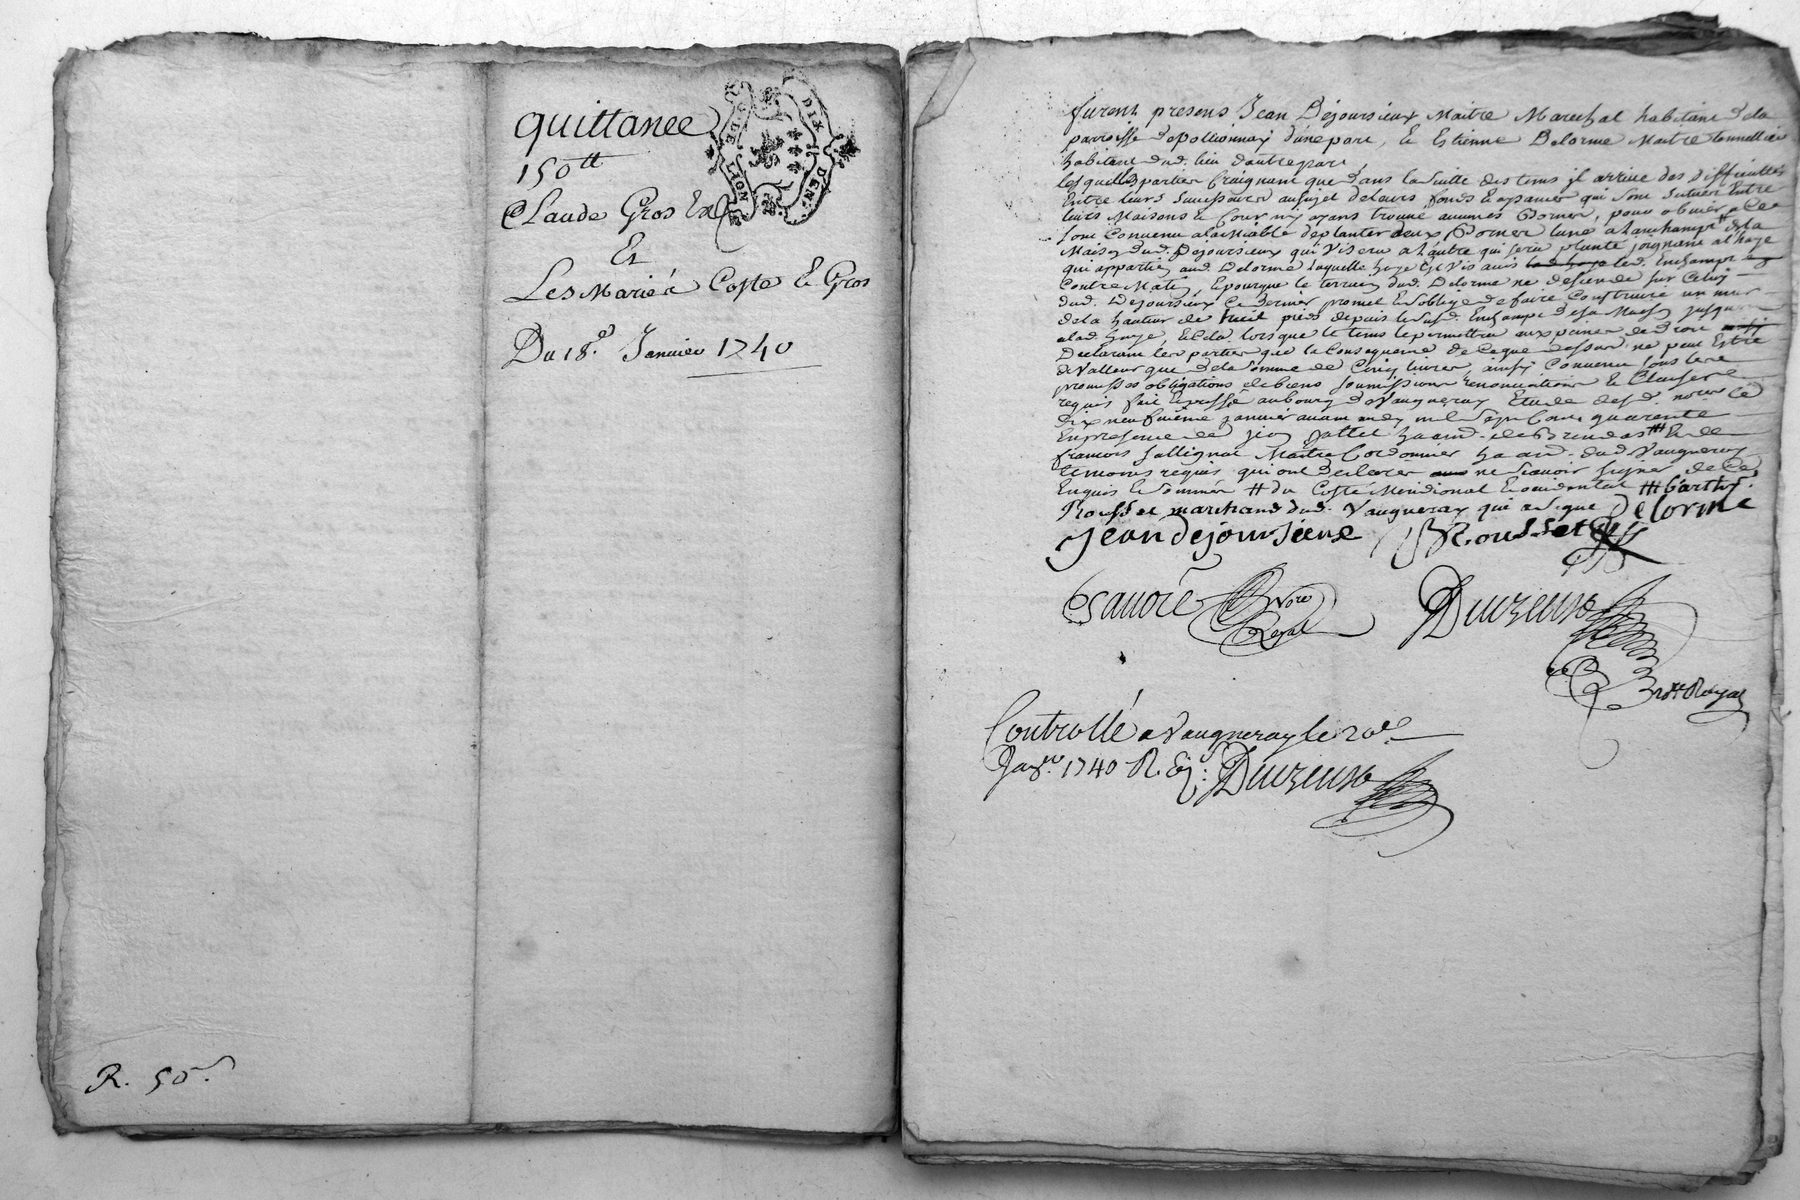 quittance
150tt
Claude Gros
Et
Les Marié Coste & Gros
Du 18e. Janvier 1740
R. 50s.
G. DE LION
DIX DEN.
furent presens Jean Dejoursieux Maitre Marechal habitant de la
parroisse de pollionnay d'une part, & Estienne Delorme Maitre tonnellier
habitant dud. lieu d'autre part,
lesquelles parties Craignant que dans la suitte des tems jl arrive des difficultés
Entre leurs successeurs au sujet de leurs fonds qui sont scitués Entre
leurs Maisons & Cour ny ayant trouvé aucunes Bornes, pour obvier a Ce
sont Convenu a la Miable de planter deux Bornes lune a de la
Maison dud. Dejoursieux qui visera a lautre qui sera planté joignant a l'haye
qui appartien aud. Delorme laquelle haye Est vis avis led.
Contre Mat Epourque le terrien dud. Delorme ne desiende sur Celuy
dud. Dejoursieux Ce dernier promet & soblige de faire Construire un mur
de la hauteur de pieds depuis le susd. de sa Maison jusqu
alad. haye, & Cela lorsque le tems le permettra aux peines de droit
Declarant les parties que la Consequence de Ceque dessus ne peut Estre
de Valleur que de la somme de Cinq livres, ainsy Convenu sous les
promesses obligations de biens soumissions renonciations & Clauses
requis fait & passé au bourg de Vaugneray Etude desd. nores le
dix neufvieme janvier avant midy mil sept Cent quarante
En presence de
françois Sallignat Maitre Cordonnier dud. Vaugneray
temoins requis qui ont declarer ne scavoir signer de Ce
Enquis & sommés # du Costé Meridional & occidental ### Barth.
Rousset marchand dud. Vaugneray qui a signé Delorme
Jean dejoursieux B Rousset
nore
Royal
nore Royal
Controllé a Vaugneray le 20e.
Janer. 1740 R.